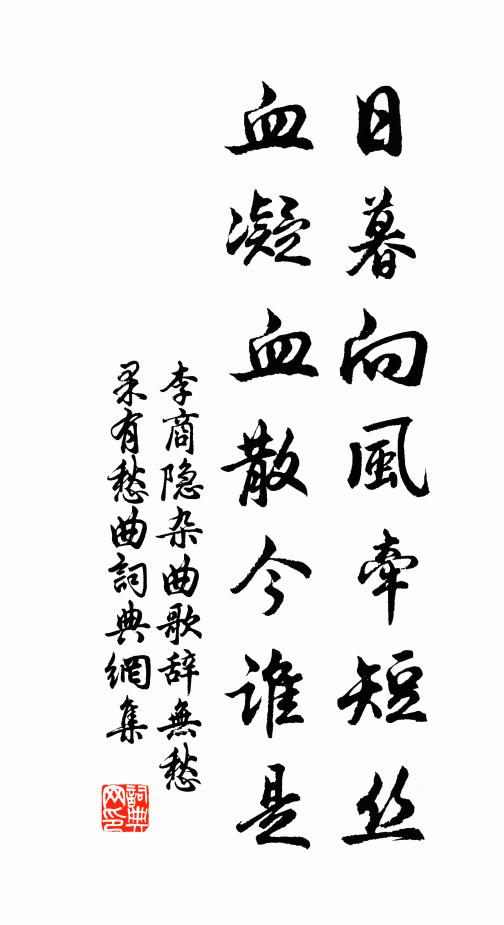 日暮向風牽短丝
血凝血散今谁是
李商隐杂曲歌辞無愁
果有愁曲詞典網集
詞典网印